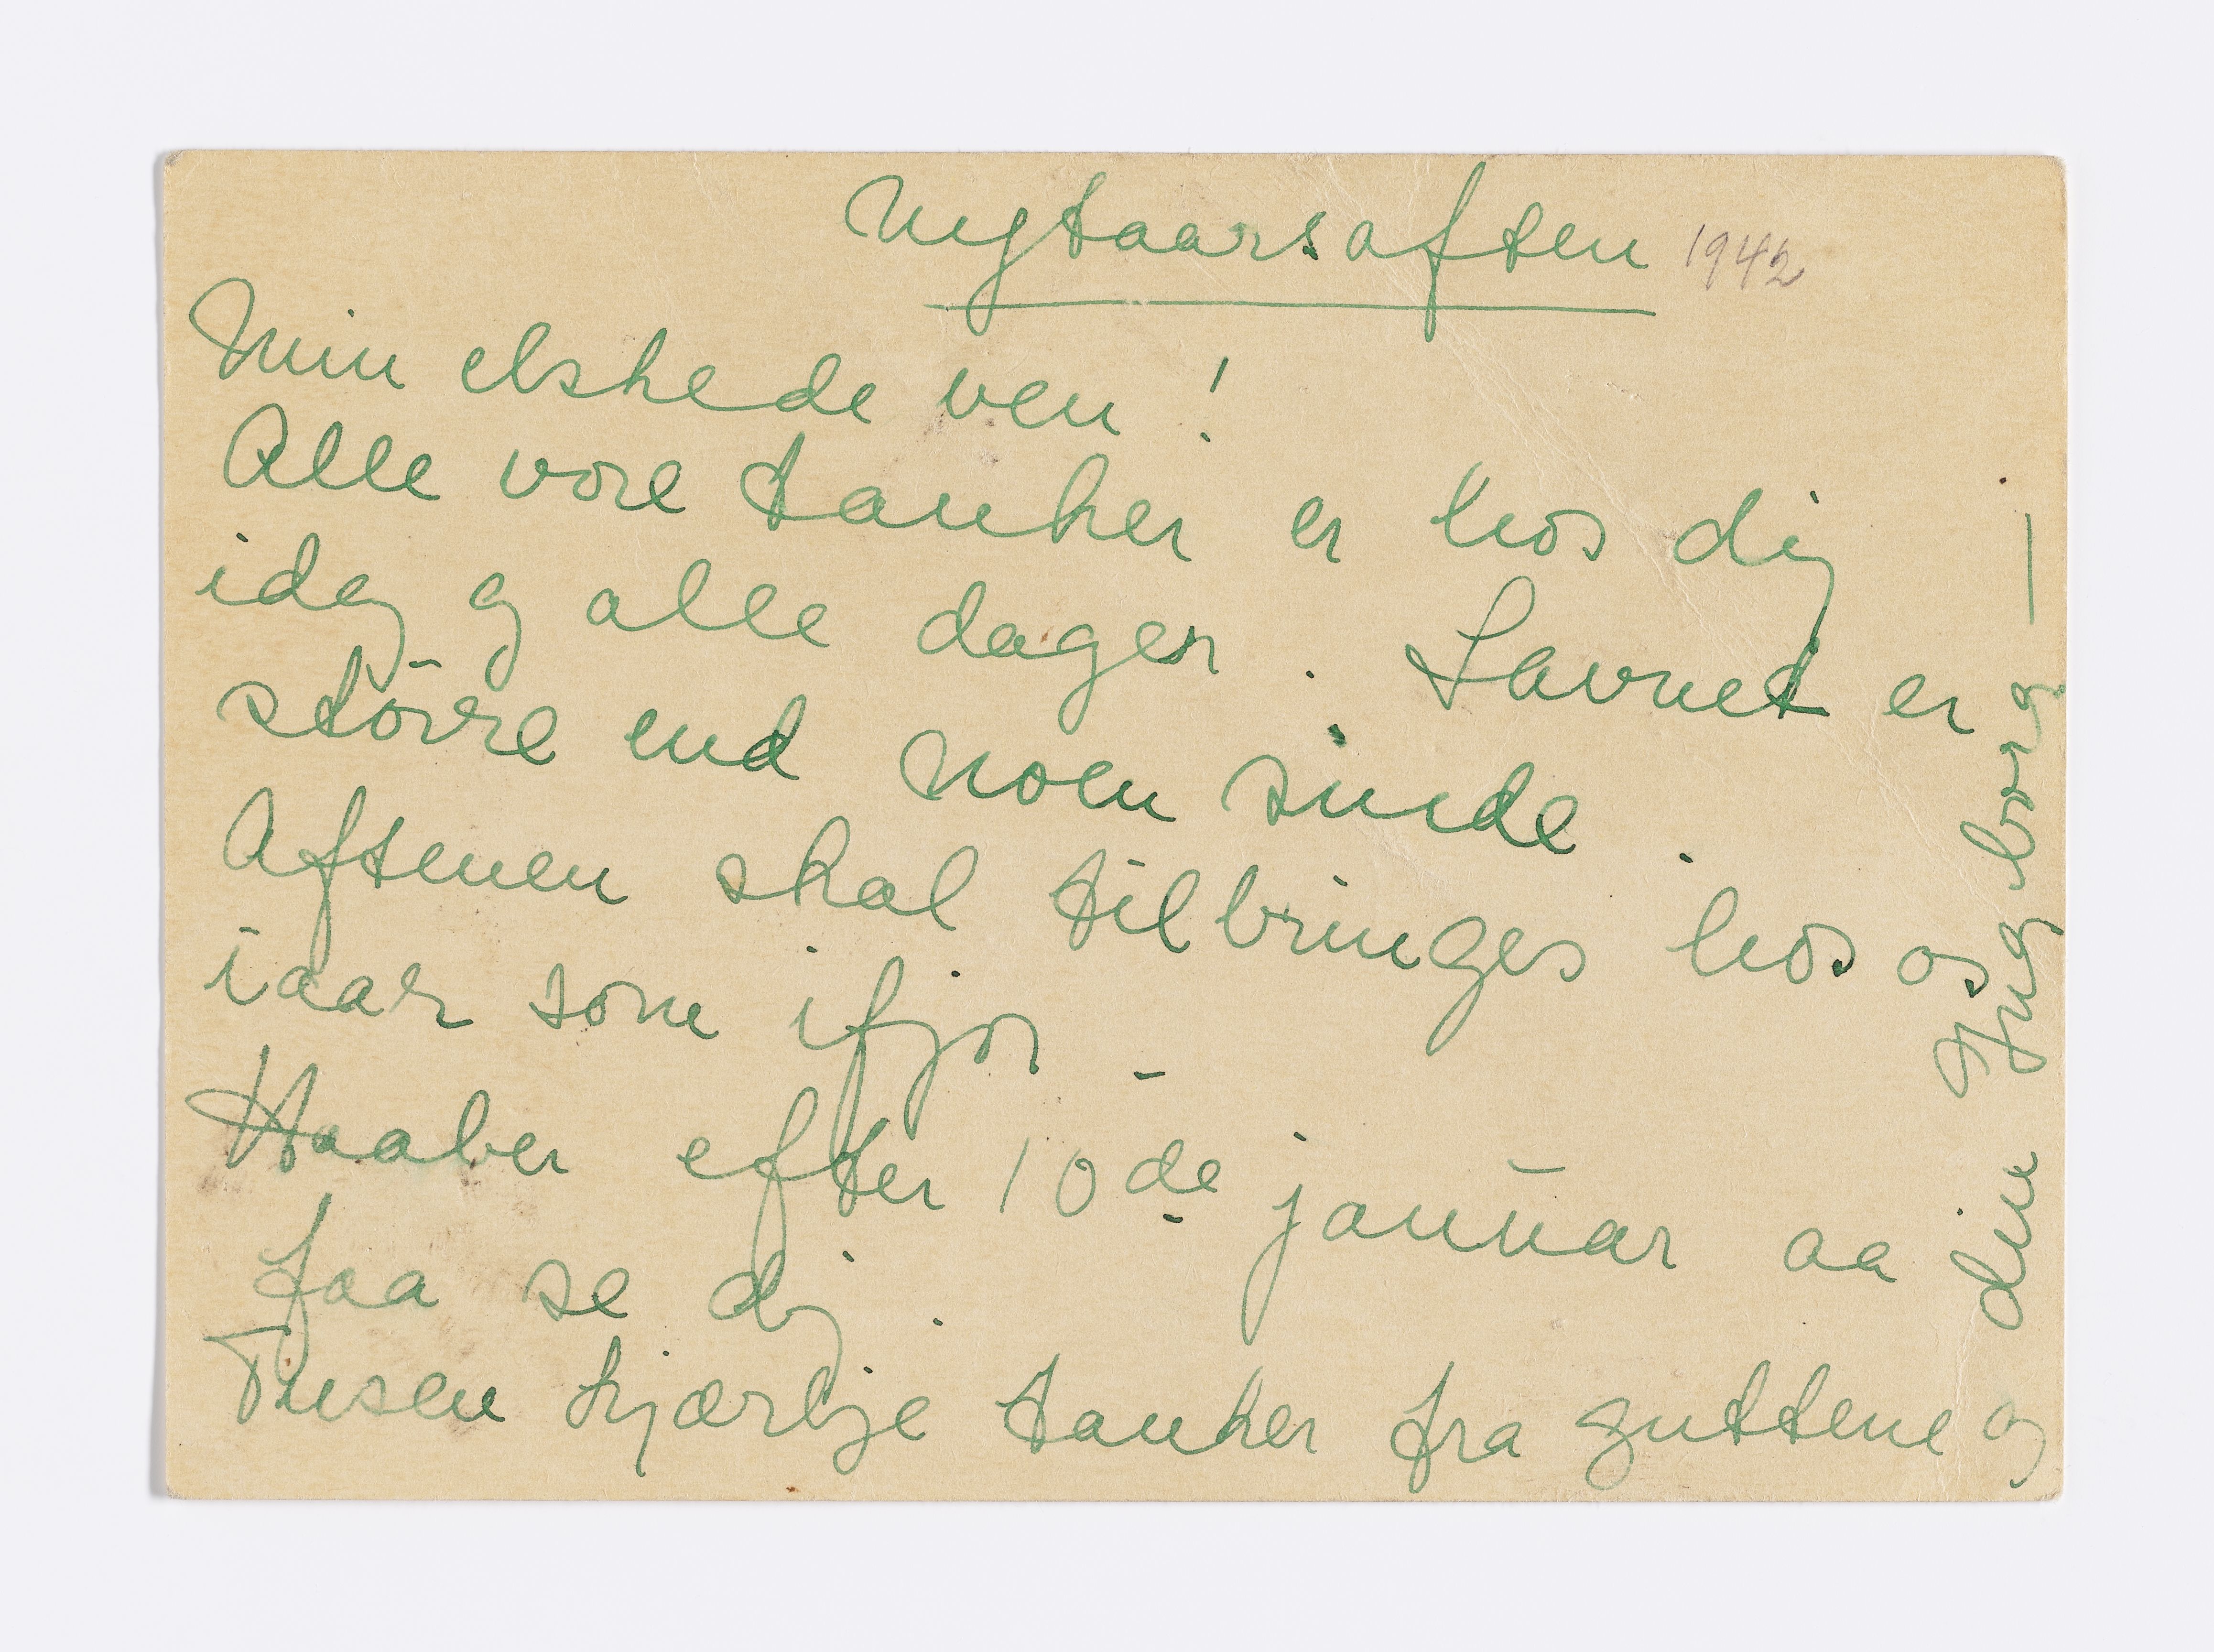 Nytaarsaften 1942
Min elskede ven!
Alle vore tanker er hos dig
idag og alle dager. Savnet er
større end noen sinde.
Aftenen skal tilbringes hos os
iaar som ifjor –
Haaber efter 10de januar aa
faa se dig.
Tusen kjærlige tanker fra guttene og
din Ingeborg –